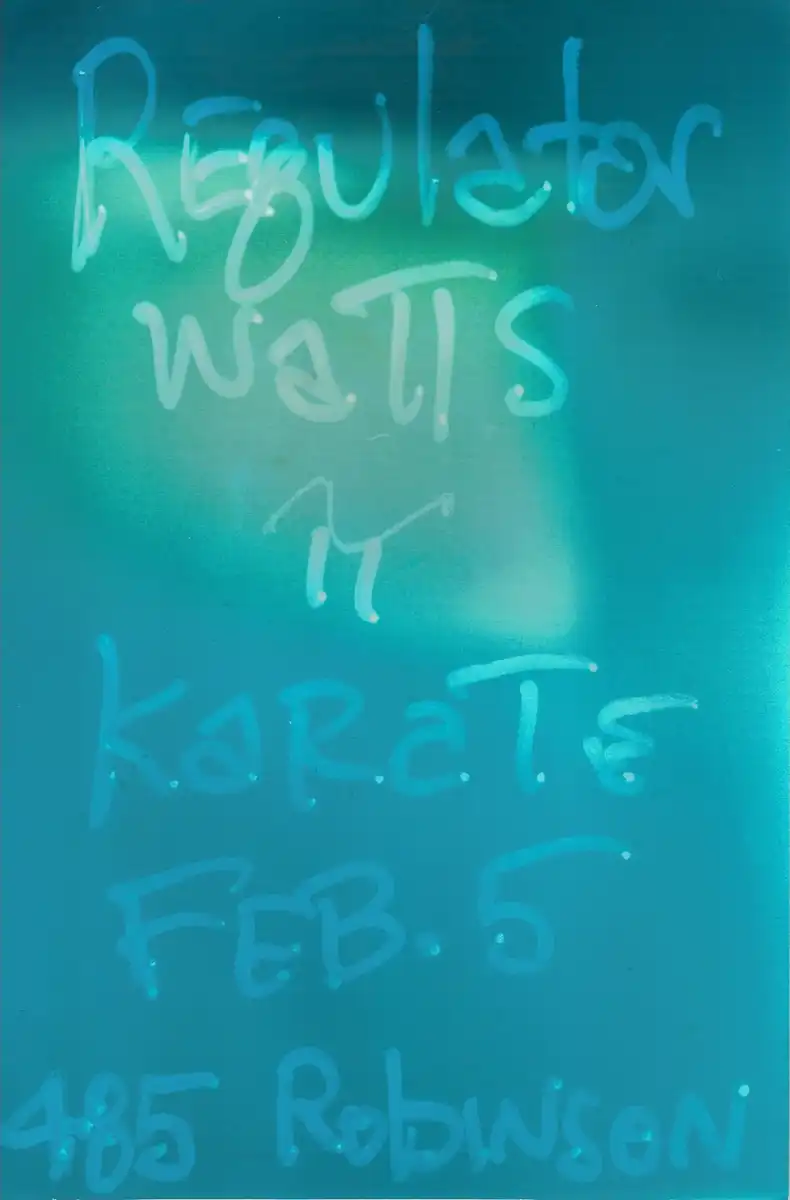 REgulator
WaTTS
KaRaTE
FEB. 5
485 RobiNSON